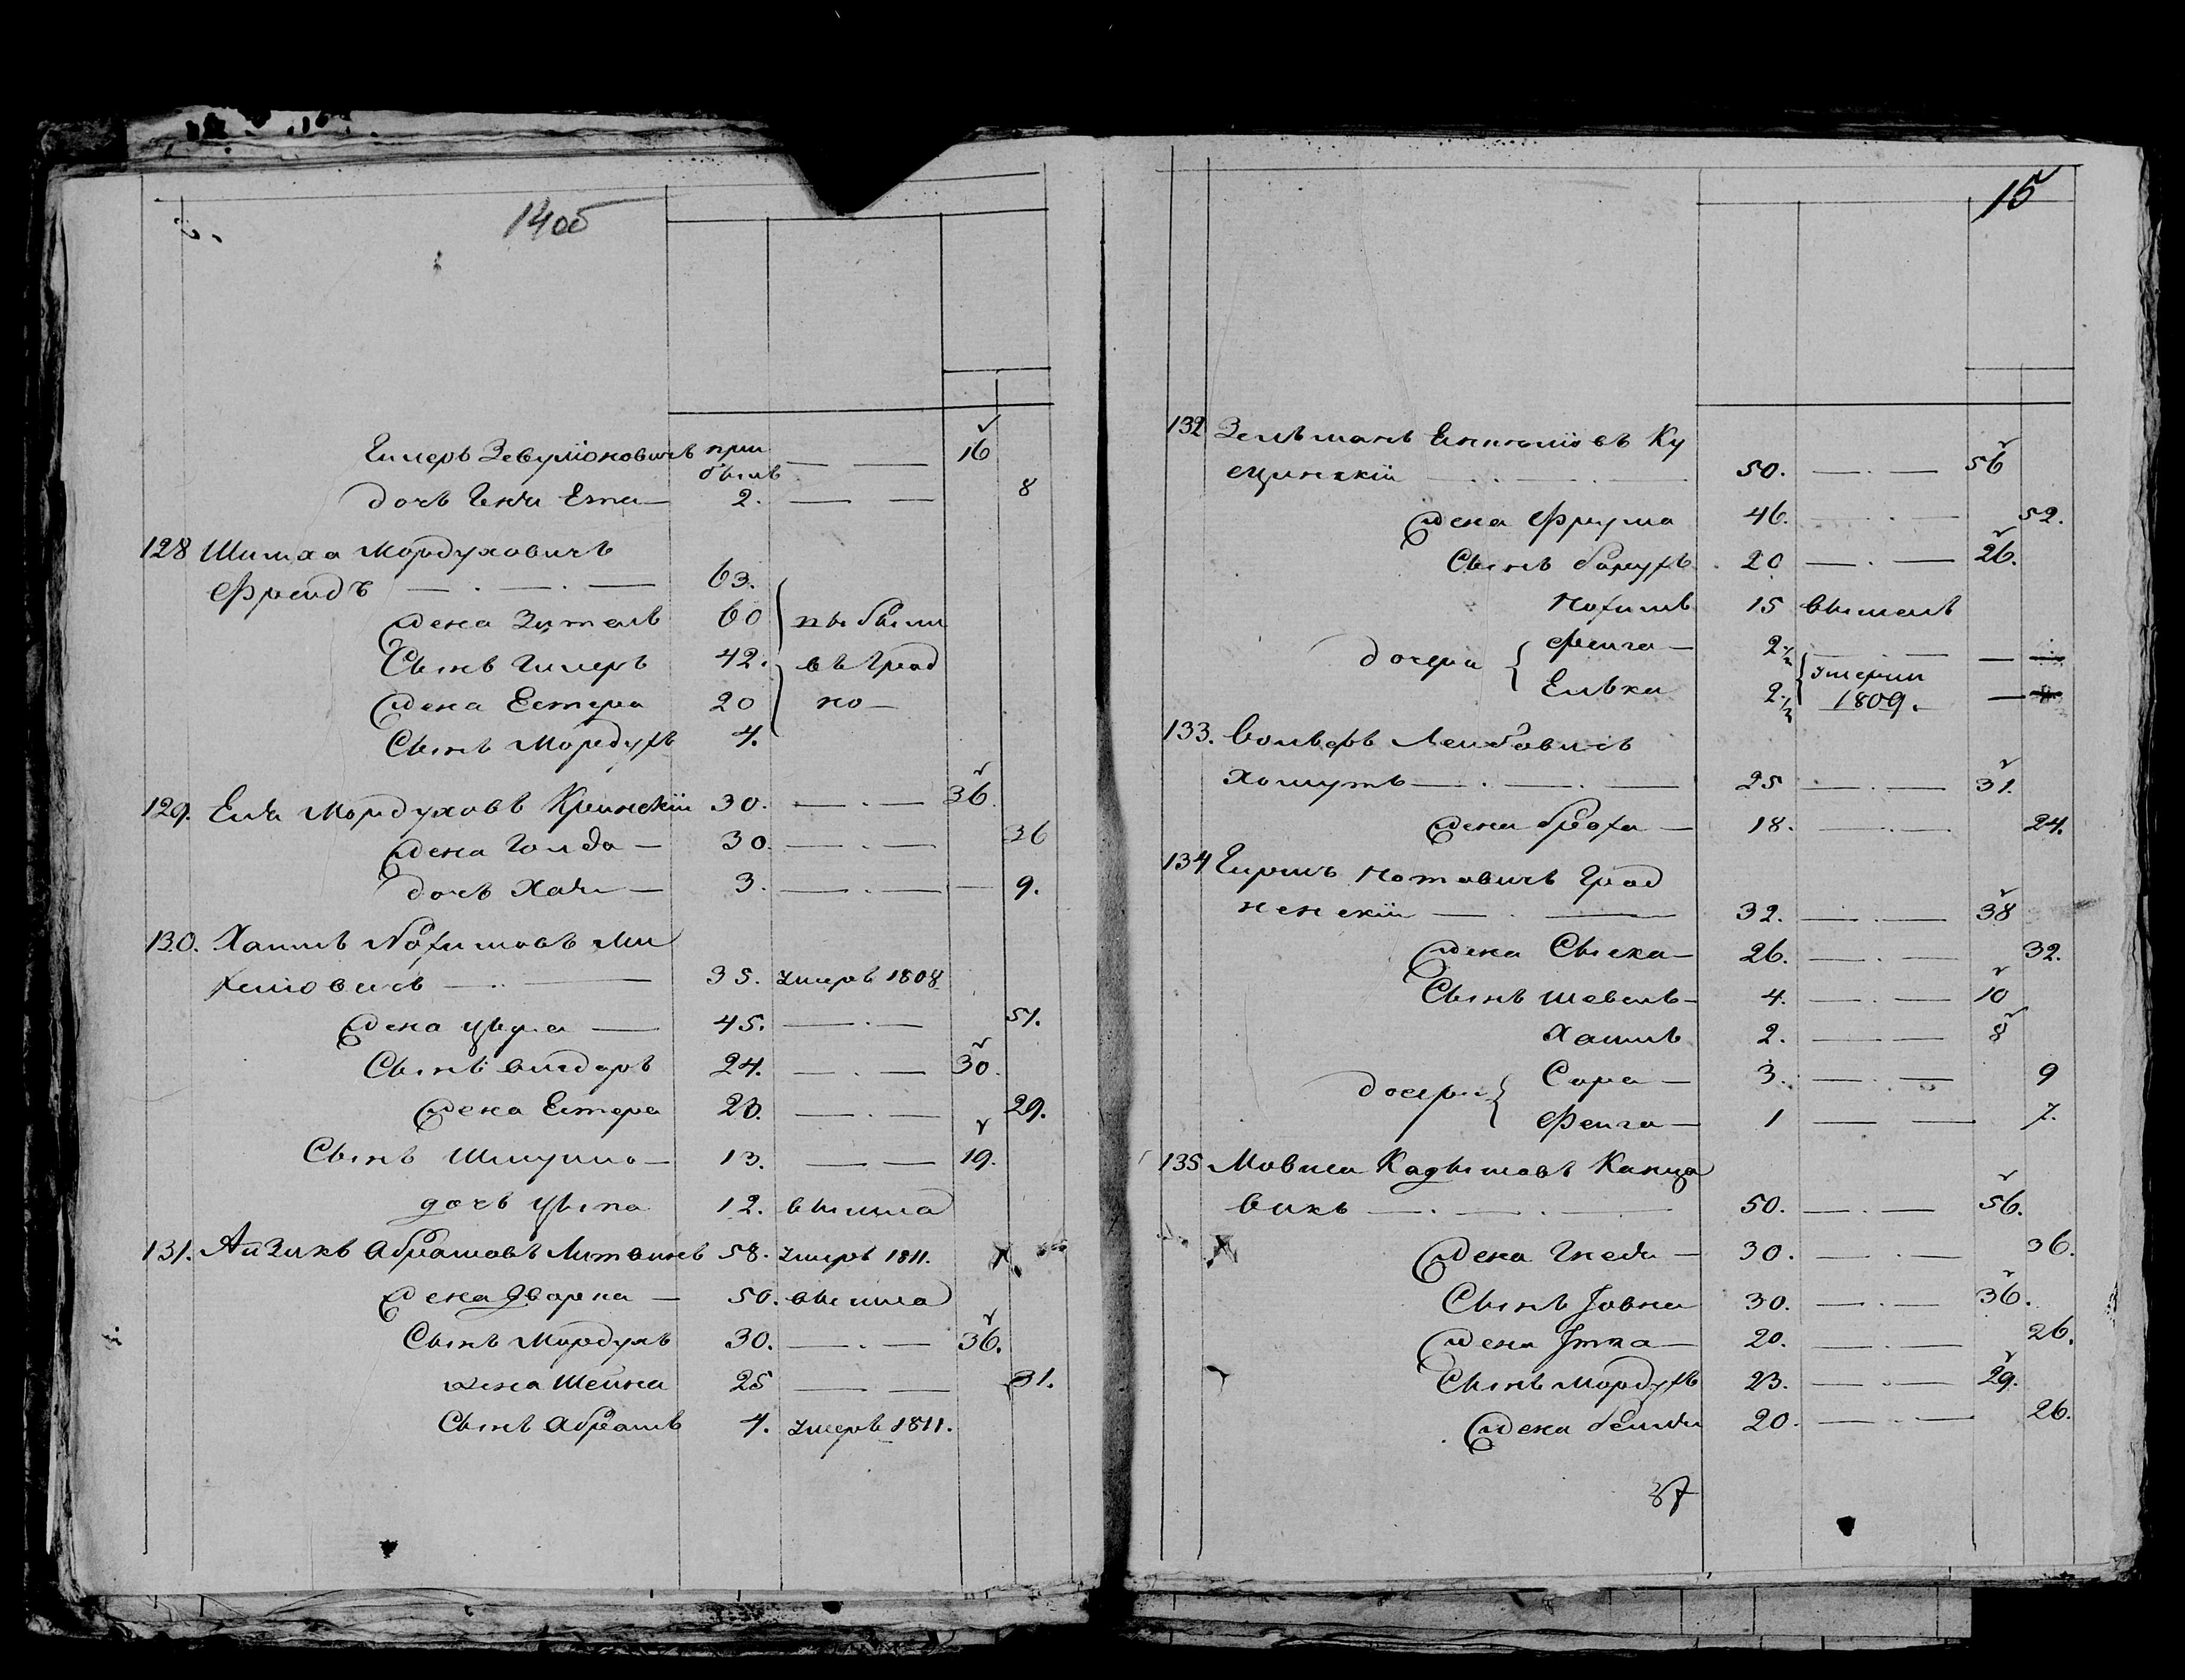 14об
Гилеръ Зевулюновичъ при
былъ — — 16
дочь Геня Ета — 2. — — 8
128 Шимха Мордуховичъ
Френдъ — . — . — 63.
жена Зители 60 выбыли
Сынъ Гилеръ 42. въ Грод
жена Естера 20 но —
Сынъ Мордухъ 4.
129. Еля Мордуховъ Кринскiй 30. — . — 36.
жена Голда — 30. — . — 36
дочь Хая — 3. — . — 9.
130. Хаимъ Нохимовъ Ми
хелiовичъ — . — 35. умеръ 1808
жена — 45. — . — 51.
Сынъ Вигдоръ 24. — . — 30.
жена Естера 23. — . — 29.
Сынъ — 13. — — 19.
дочь Цыпа 12. вышла
131. Айзикъ Абрамовъ Литвинъ 58. умеръ 1811.
жена Дворка — 50. вышла
Сынъ Мордухъ 30. — . — 36.
жена Шейна 25 — — 31.
Сынъ Абрамъ 4. умеръ 1811.
15
132 Зельманъ Ку
щинскiй 50. — . — 56
жена Фрума 46. — . — 52.
Сынъ Борухъ 20 — . — 26.
Нохимъ 15 вышелъ
дочери Фейга — 2½ умерли
Елька 2½ 1809.
133. Вольфъ Лейбовичъ
Хомутъ — . — . — 25 — . — 31.
жена Броха — 18. — . — 24.
134 Гиршъ Нотовичъ Грод
ненскiй — . — 32. — . — 38
жена — 26. — . — 32.
Сынъ Шевель — 4. — . — 10
Хаимъ 2. — . — 8
дочери Сора — 3. — . — 9
Фейга — 1 — — 7.
135 Мовша Кадышовъ Канца
викъ — . — . — 50. — . — 56.
жена Гнеся — 30. — . — 36.
Сынъ Iовна 30. — . — 36.
жена Iтка — 20. — . — 26.
Сынъ Мордухъ 23. — . — 29.
жена Бейля 20. — . — 26.
37